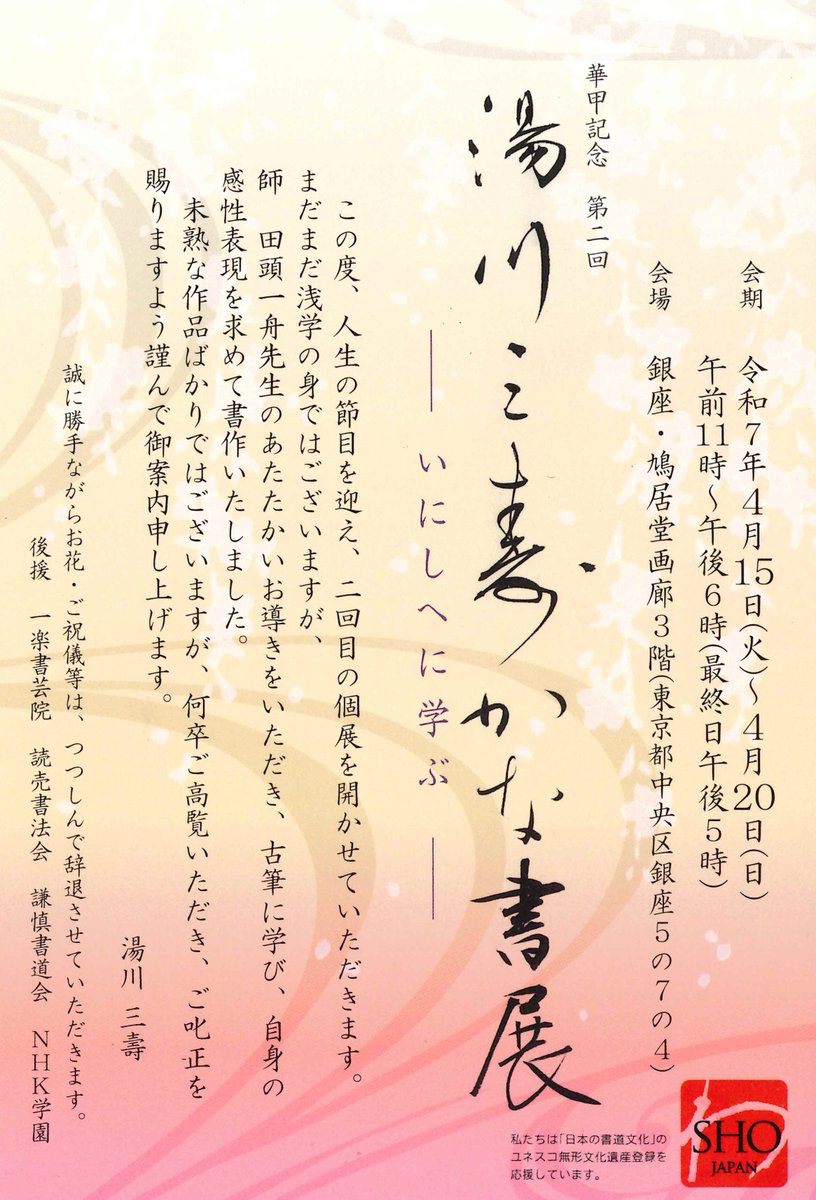 会期　令和7年4月15日(火)～4月20日(日)
午前11時～午後6時(最終日午後5時)
会場　銀座・鳩居堂画廊3階(東京都中央区銀座5の7の4)
華甲記念　第二回
湯川三寿かな書展
―― いにしへに学ぶ ――
この度、人生の節目を迎え、二回目の個展を開かせていただきます。
まだまだ浅学の身ではございますが、
師　田頭一舟先生のあたたかいお導きをいただき、古筆に学び、自身の
感性表現を求めて書作いたしました。
未熟な作品ばかりではございますが、何卒ご高覧いただき、ご叱正を
賜りますよう謹んで御案内申し上げます。
湯川 三壽
誠に勝手ながらお花・ご祝儀等は、つつしんで辞退させていただきます。
後援　一楽書芸院　読売書法会　謙慎書道会　NHK学園
私たちは「日本の書道文化」の
ユネスコ無形文化遺産登録を
応援しています。
SHO
JAPAN